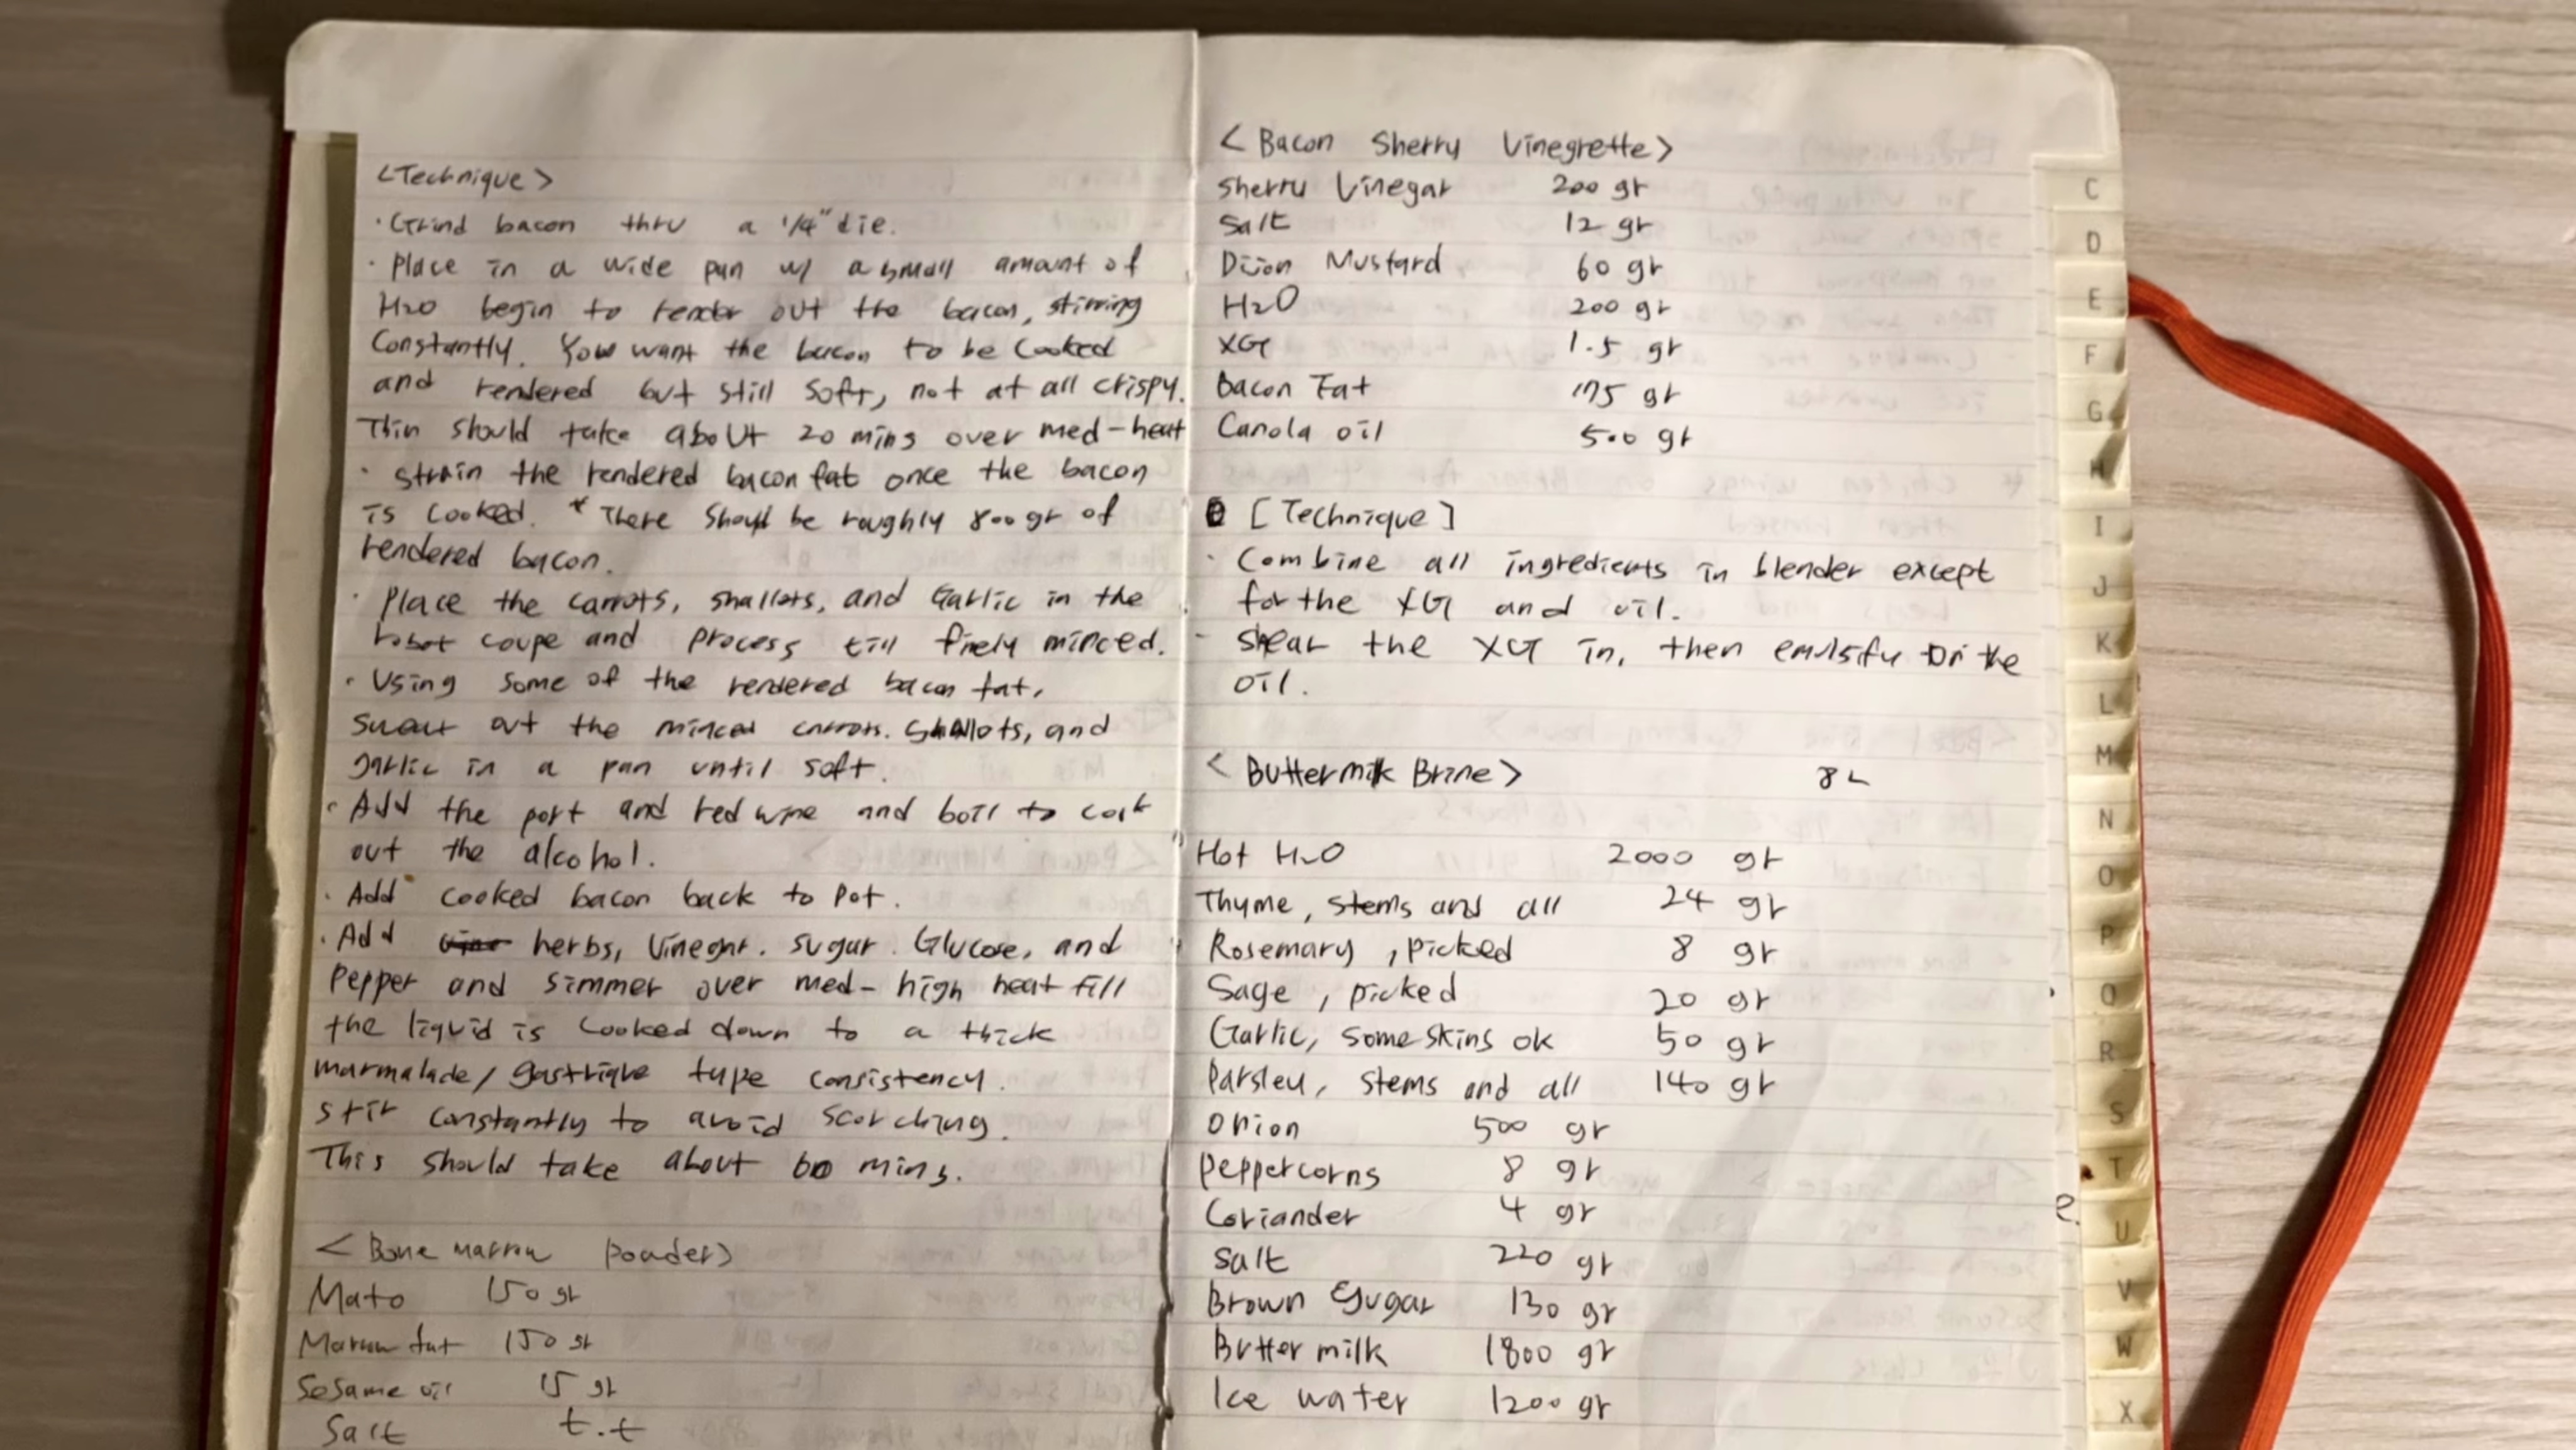 <Technique>
· Grind bacon thru a 1/4" die.
· Place in a wide pan w/ a small amount of
H2O begin to render out the bacon, stirring
Constantly. You want the bacon to be Cooked
and rendered but still soft, not at all crispy.
This should take about 20 mins over med-heat
· strain the rendered bacon fat once the bacon
is cooked. * There should be roughly 800 gr of
rendered bacon.
· Place the carrots, shallots, and Garlic in the
robot coupe and process till finely minced.
· Using some of the rendered bacon fat,
sweat out the minced carrots. Shallots, and
garlic in a pan until soft.
· Add the port and red wine and boil to cook
out the alcohol.
· Add cooked bacon back to pot.
· Add herbs, Vinegar. sugar. Glucose, and
Pepper and simmer over med-high heat till
the liquid is cooked down to a thick
marmalade/ gastrique type consistency.
stir constantly to avoid scorching.
This should take about 60 mins.
<Bone marrow powder>
Mato 150 gr
Marrow fat 150 gr
Sesame oil 15 gr
Salt t.t
<Bacon Sherry Vinegrette>
Sherry Vinegar 200 gr
Salt 12 gr
Dijon Mustard 60 gr
H2O 200 gr
XG 1.5 gr
Bacon Fat 175 gr
Canola oil 500 gr
[Technique]
· Combine all ingredients in blender except
for the XG and oil.
- shear the XG in, then emulsify in the
oil.
<Buttermilk Brine> 8L
Hot H2O 2000 gr
Thyme, stems and all 24 gr
Rosemary, picked 8 gr
Sage, picked 20 gr
Garlic, some skins ok 50 gr
Parsley, stems and all 140 gr
Onion 500 gr
peppercorns 8 gr
Coriander 4 gr
Salt 220 gr
Brown Sugar 130 gr
Butter milk 1800 gr
Ice water 1200 gr
C
D
E
F
G
H
I
J
K
L
M
N
O
P
Q
R
S
T
U
V
W
X